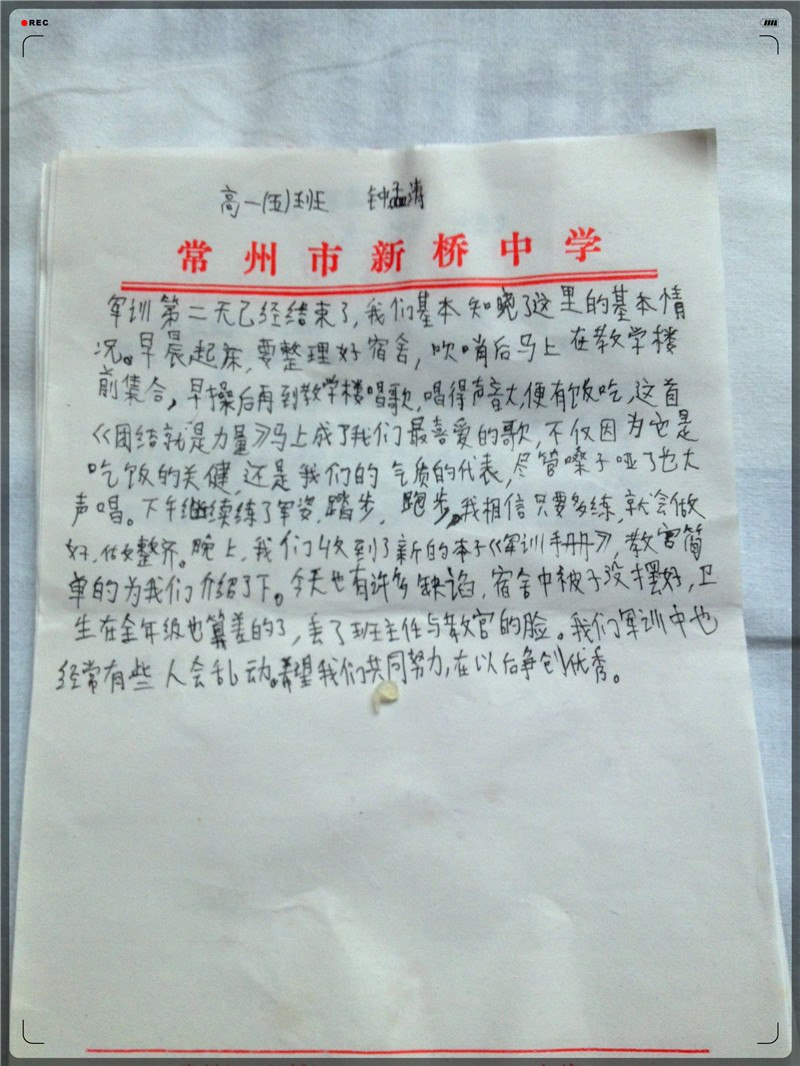 REC
高一(五)班 钟孟涛
常州市新桥中学
军训第二天已经结束了,我们基本知晓了这里的基本情
况。早晨起床,要整理好宿舍,吹哨后马上在教学楼
前集合,早操后再到教学楼唱歌,唱得声音大,便有饭吃,这首
《团结就是力量》马上成了我们最喜爱的歌,不仅因为它是
吃饭的关健,还是我们的气质的代表,尽管嗓子哑了也大
声唱。下午继续练了军姿,踏步,跑步,我相信只要多练,就会做
好,做整齐。晚上,我们收到了新的本子《军训手册》,教官简
单的为我们介绍了下。今天也有许多缺谄,宿舍中被子没摆好,卫
生在全年级也算差的了,丢了班主任与教官的脸。我们军训中也
经常有些人会乱动。希望我们共同努力,在以后争创优秀。